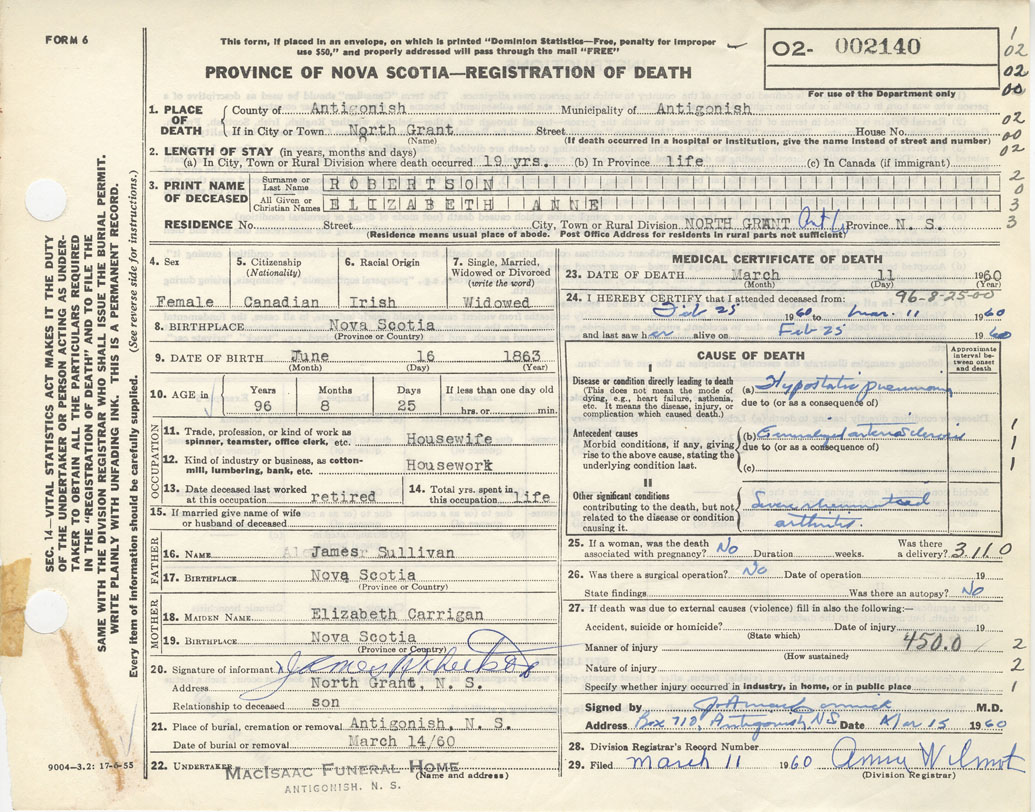 FORM 6
This form, if placed in an envelope, on which is printed "Dominion Statistics—Free, penalty for improper
use $50," and properly addressed will pass through the mail "FREE"
02- 002140
For use of the Department only
PROVINCE OF NOVA SCOTIA—REGISTRATION OF DEATH
1. PLACE OF DEATH
County of Antigonish Municipality of Antigonish
If in City or Town North Grant Street House No.
(Name) (If death occurred in a hospital or institution, give the name instead of street and number)
2. LENGTH OF STAY (in years, months and days)
(a) In City, Town or Rural Division where death occurred 19 yrs. (b) In Province life (c) In Canada (if immigrant)
3. PRINT NAME OF DECEASED
Surname or Last Name ROBERTSON
All Given or Christian Names ELIZABETH ANNE
RESIDENCE No. Street City, Town or Rural Division NORTH GRANT Province N. S.
(Residence means usual place of abode. Post Office Address for residents in rural parts not sufficient)
4. Sex
Female
5. Citizenship
(Nationality)
Canadian
6. Racial Origin
Irish
7. Single, Married,
Widowed or Divorced
(write the word)
Widowed
8. BIRTHPLACE Nova Scotia
(Province or Country)
9. DATE OF BIRTH June 16 1863
(Month) (Day) (Year)
10. AGE in
Years Months Days If less than one day old
96 8 25 hrs. or min.
OCCUPATION
11. Trade, profession, or kind of work as
spinner, teamster, office clerk, etc. Housewife
12. Kind of industry or business, as cotton-
mill, lumbering, bank, etc. Housework
13. Date deceased last worked
at this occupation retired
14. Total yrs. spent in
this occupation life
15. If married give name of wife
or husband of deceased
FATHER
16. NAME James Sullivan
17. BIRTHPLACE Nova Scotia
(Province or Country)
MOTHER
18. MAIDEN NAME Elizabeth Carrigan
19. BIRTHPLACE Nova Scotia
(Province or Country)
20. Signature of informant James Robertson
Address North Grant, N. S.
Relationship to deceased son
21. Place of burial, cremation or removal Antigonish, N. S.
Date of burial or removal March 14/60
22. UNDERTAKER MACISAAC FUNERAL HOME
(Name and address)
ANTIGONISH, N. S.
MEDICAL CERTIFICATE OF DEATH
23. DATE OF DEATH March 11 1960
(Month) (Day) (Year)
96-8-25-00
24. I HEREBY CERTIFY that I attended deceased from:
Feb 25 1960 to Mar. 11 1960
and last saw her alive on Feb 25 1960
CAUSE OF DEATH
Approximate
interval be-
tween onset
and death
I
Disease or condition directly leading to death
(This does not mean the mode of
dying, e.g., heart failure, asthenia,
etc. It means the disease, injury, or
complication which caused death.)
(a) Hypostatic pneumony
due to (or as a consequence of)
Antecedent causes
Morbid conditions, if any, giving
rise to the above cause, stating the
underlying condition last.
(b) Generalized arteriosclerosis
due to (or as a consequence of)
(c)
II
Other significant conditions
contributing to the death, but not
related to the disease or condition
causing it.
Severe rheumatoid
arthritis
25. If a woman, was the death
associated with pregnancy? No Duration weeks. Was there
a delivery? 3.110
26. Was there a surgical operation? No Date of operation 19
State findings Was there an autopsy? No
27. If death was due to external causes (violence) fill in also the following:—
Accident, suicide or homicide? Date of injury 19
(State which)
Manner of injury 450.0
(How sustained)
Nature of injury
Specify whether injury occurred in industry, in home, or in public place
Signed by M.D.
Address Box 710, Antigonish, NS Date Mar 15 1960
28. Division Registrar's Record Number
29. Filed March 11 1960 Wilmot
(Division Registrar)
1
02
02
00
02
00
02
2
0
3
3
1
1
1
2
2
1
SEC. 14—VITAL STATISTICS ACT MAKES IT THE DUTY
OF THE UNDERTAKER OR PERSON ACTING AS UNDER-
TAKER TO OBTAIN ALL THE PARTICULARS REQUIRED
IN THE "REGISTRATION OF DEATH" AND TO FILE THE
SAME WITH THE DIVISION REGISTRAR WHO SHALL ISSUE THE BURIAL PERMIT.
WRITE PLAINLY WITH UNFADING INK. THIS IS A PERMANENT RECORD.
Every item of information should be carefully supplied. (See reverse side for instructions.)
9004—3.2: 17-6-55